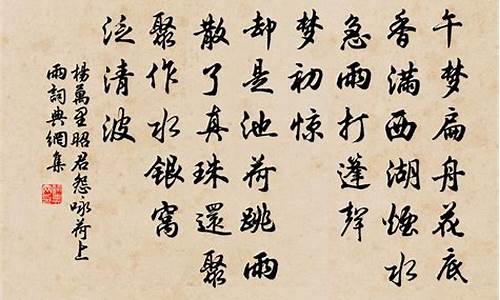 午梦扁舟花底
香满西湖烟水
急雨打蓬声
梦初惊
却是池荷跳雨
散了真珠还聚
聚作水银窝
泛清波
杨万里昭君怨咏荷上
雨词典网集